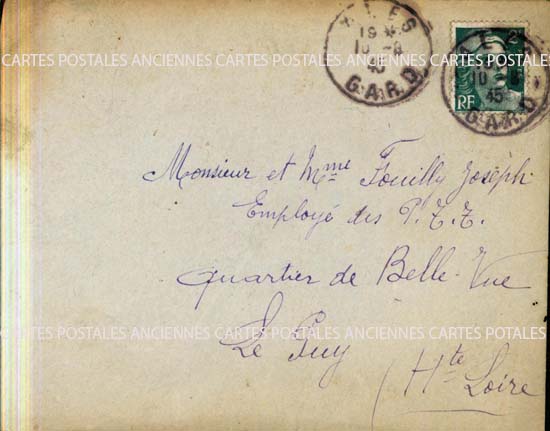 ALES
19 *
10 - 8
45
GARD
2F
RF
ALES
10 - 8
45
GARD
CARTES POSTALES ANCIENNES CARTES POSTALES ANCIENNES CARTES POSTALES
Monsieur et Mme Fouilly Joseph
Employé des P.T.T.
quartier de Belle-Vue
CARTES POSTALES ANCIENNES CARTES POSTALES ANCIENNES CARTES POTALES
Le Puy
(Hte Loire